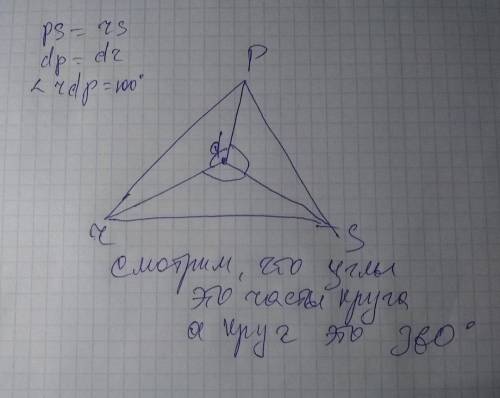 ps = rs
dp = dr
∠ rdp = 100°
P
d
r
S
Смотрим, что углы
это часты круга
а круг это 360°